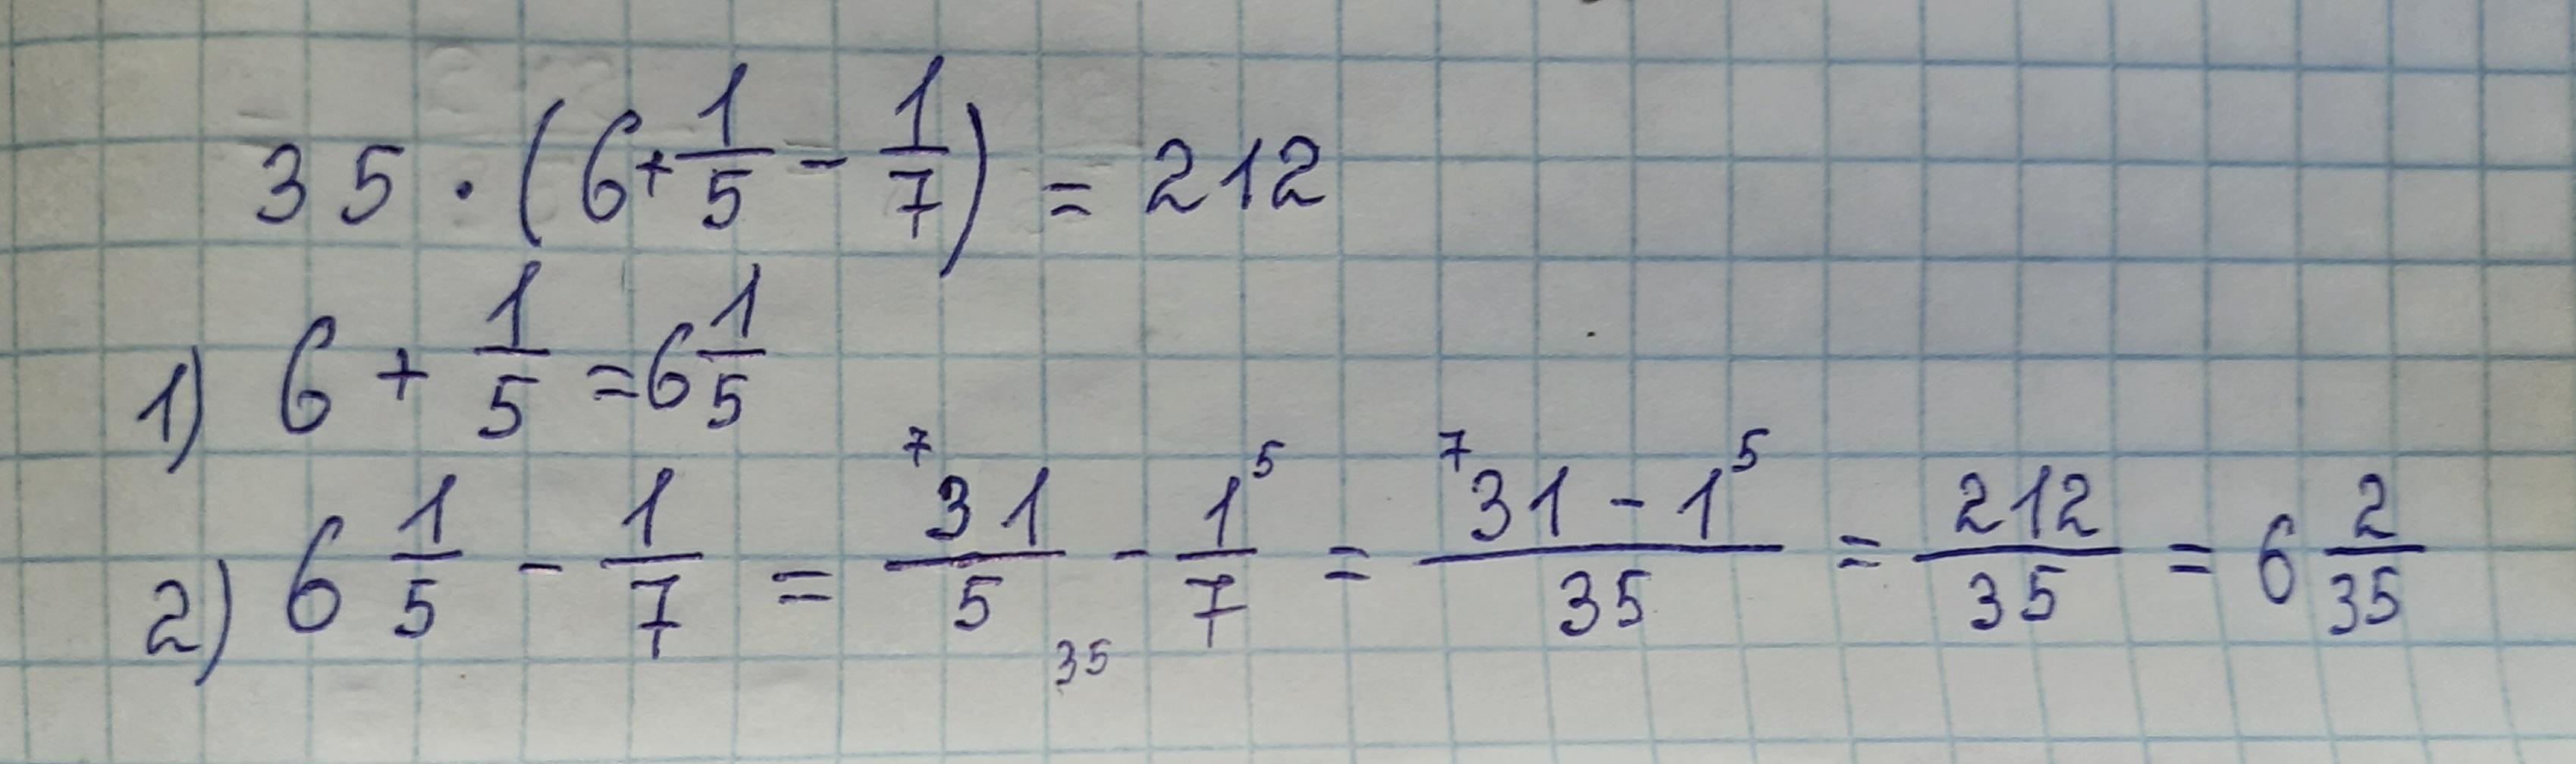 35 · (6 + 1/5 - 1/7) = 212
1) 6 + 1/5 = 6 1/5
2) 6 1/5 - 1/7 = ⁷31/5 - 1⁵/7 = ⁷31 - 1⁵/35 = 212/35 = 6 2/35
35